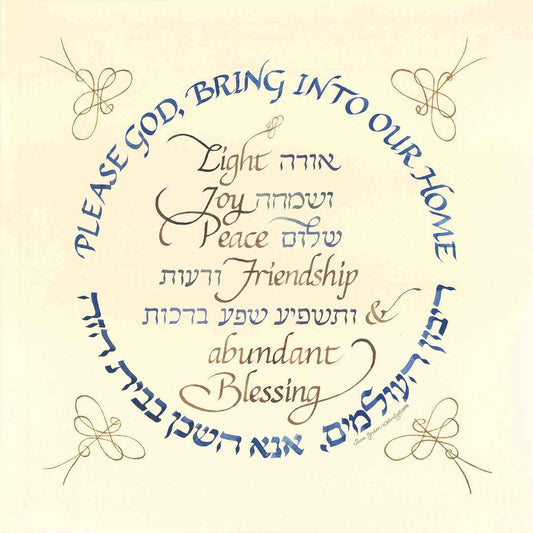 PLEASE GOD, BRING INTO OUR HOME
Light אורה
Joy ושמחה
Peace שלום
ורעות Friendship
ותשפיע שפע ברכות &
abundant
Blessing
ריבון העולמים, אנא השכן בבית הזה